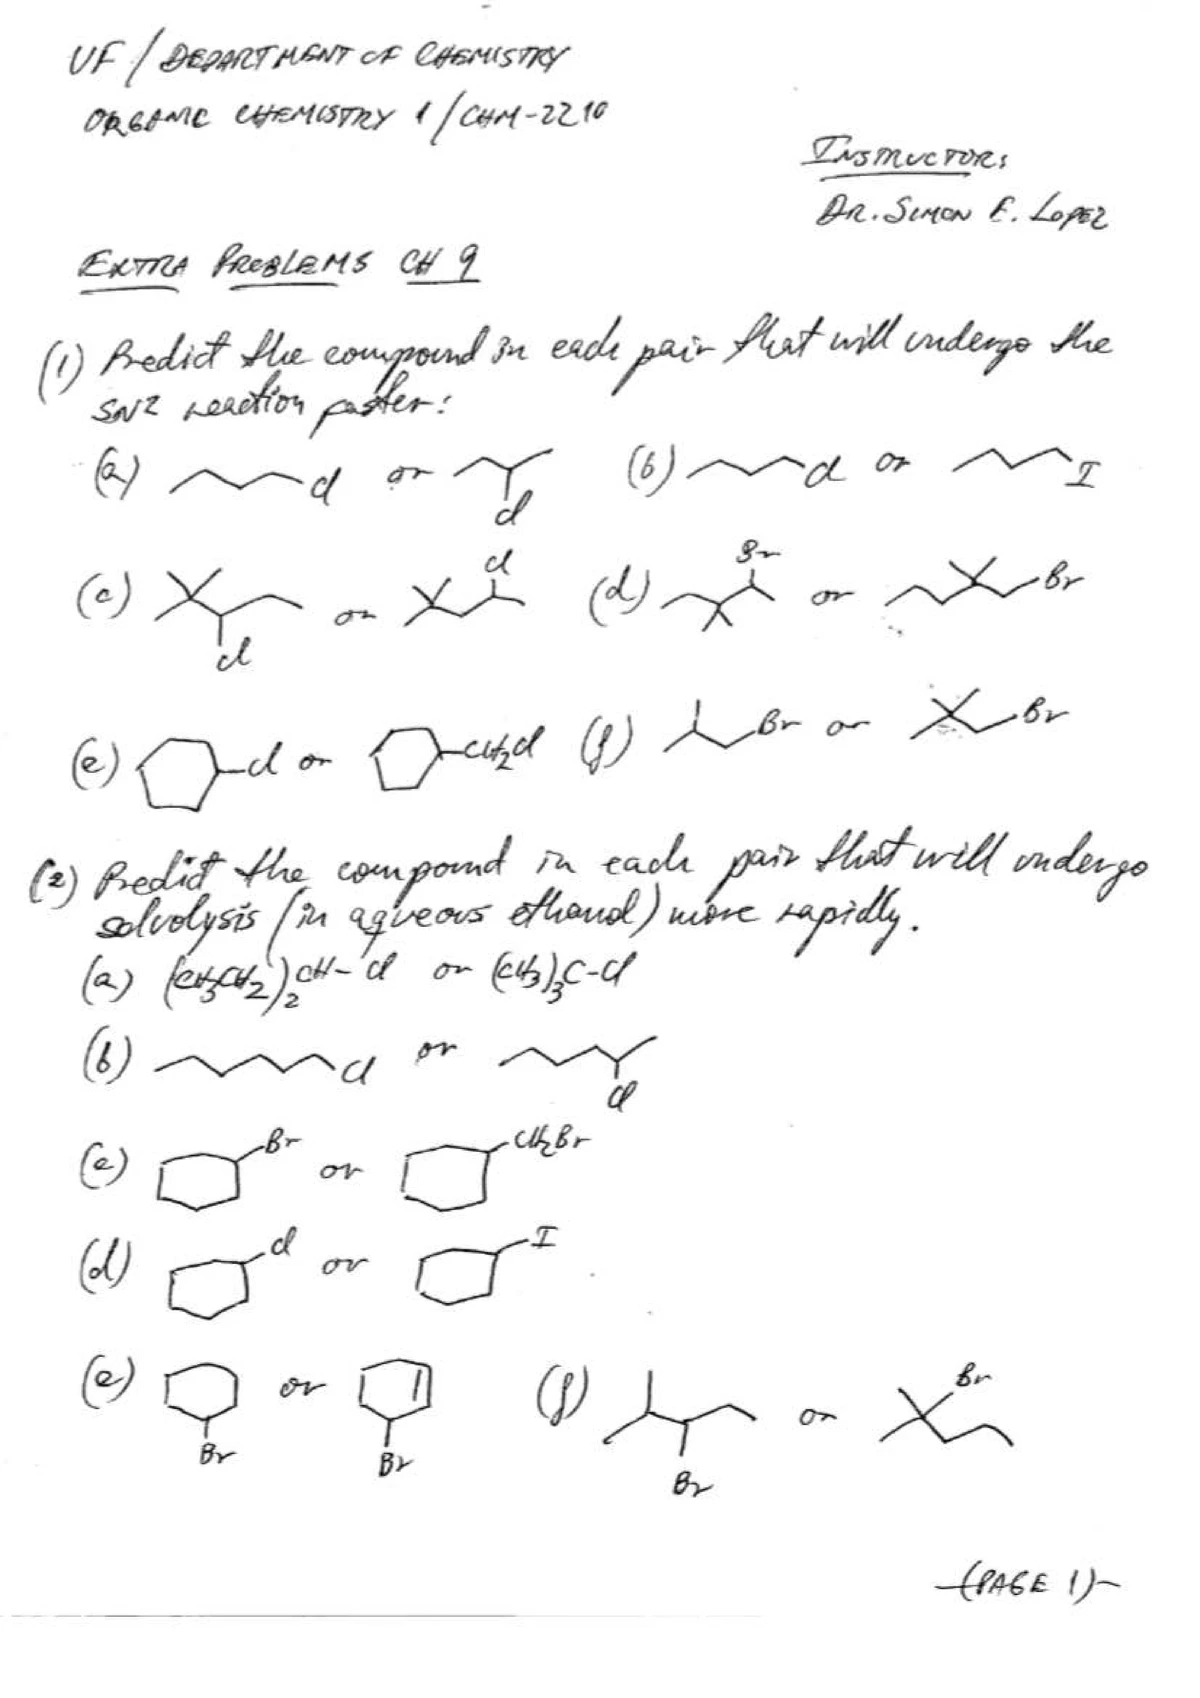 UF / DEPARTMENT OF CHEMISTRY
ORGANIC CHEMISTRY 1 / CHM-2210
INSTRUCTOR:
DR. SIMON E. LOPEZ
EXTRA PROBLEMS CH 9
(1) Predict the compound in each pair that will undergo the
SN2 reaction faster:
(a) Cl or Cl (b) Cl or I
(c) Cl or Cl (d) Br or Br
(e) Cl or CH2Cl (f) Br or Br
(2) Predict the compound in each pair that will undergo
solvolysis (in aqueous ethanol) more rapidly.
(a) (CH3CH2)2CH-Cl or (CH3)3C-Cl
(b) Cl or Cl
(c) Br or CH2Br
(d) Cl or I
(e) Br or Br (f) Br or Br
-(PAGE 1)-